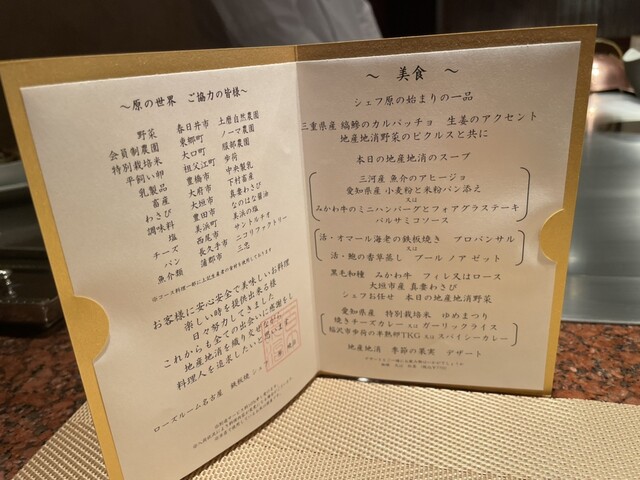 ～原の世界　ご協力の皆様～
野菜　春日井市　土磨自然農園
会員制農園　東郷町　ノーマ農園
特別栽培米　大口町　服部農園
平飼い卵　祖父江町　歩荷
乳製品　豊橋市　中央製乳
畜産　大府市　下村畜産
わさび　大垣市　真妻わさび
調味料　豊田市　なのはな醤油
塩　美浜町　美浜の塩
チーズ　西尾市　サントルチオ
パン　長久手市　ニコリファクトリー
魚介類　蒲郡市　三忠
お客様に安心安全で美味しいお料理
楽しい時を提供出来る様
日々努力してきました
これからも全ての出会いに感謝をし
地産地消を織りませながら
料理人を追求したいと思います
ローズルーム名古屋　鉄板焼　シェフ
～　美食　～
シェフ原の始まりの一品
三重県産 縞鯵のカルパッチョ　生姜のアクセント
地産地消野菜のピクルスと共に
本日の地産地消のスープ
三河産 魚介のアヒージョ
愛知県産 小麦粉と米粉パン添え
又は
みかわ牛のミニハンバーグとフォアグラステーキ
バルサミコソース
活・オマール海老の鉄板焼き　プロバンサル
又は
活・鮑の香草蒸し　ブール ノア ゼット
黒毛和種　みかわ牛　フィレ又はロース
大垣市産 真妻わさび
シェフお任せ　本日の地産地消野菜
愛知県産　特別栽培米　ゆめまつり
焼きチーズカレー 又は ガーリックライス
又は
稲沢市歩荷の半熟卵TKG 又は スパイシーカレー
地産地消　季節の果実　デザート